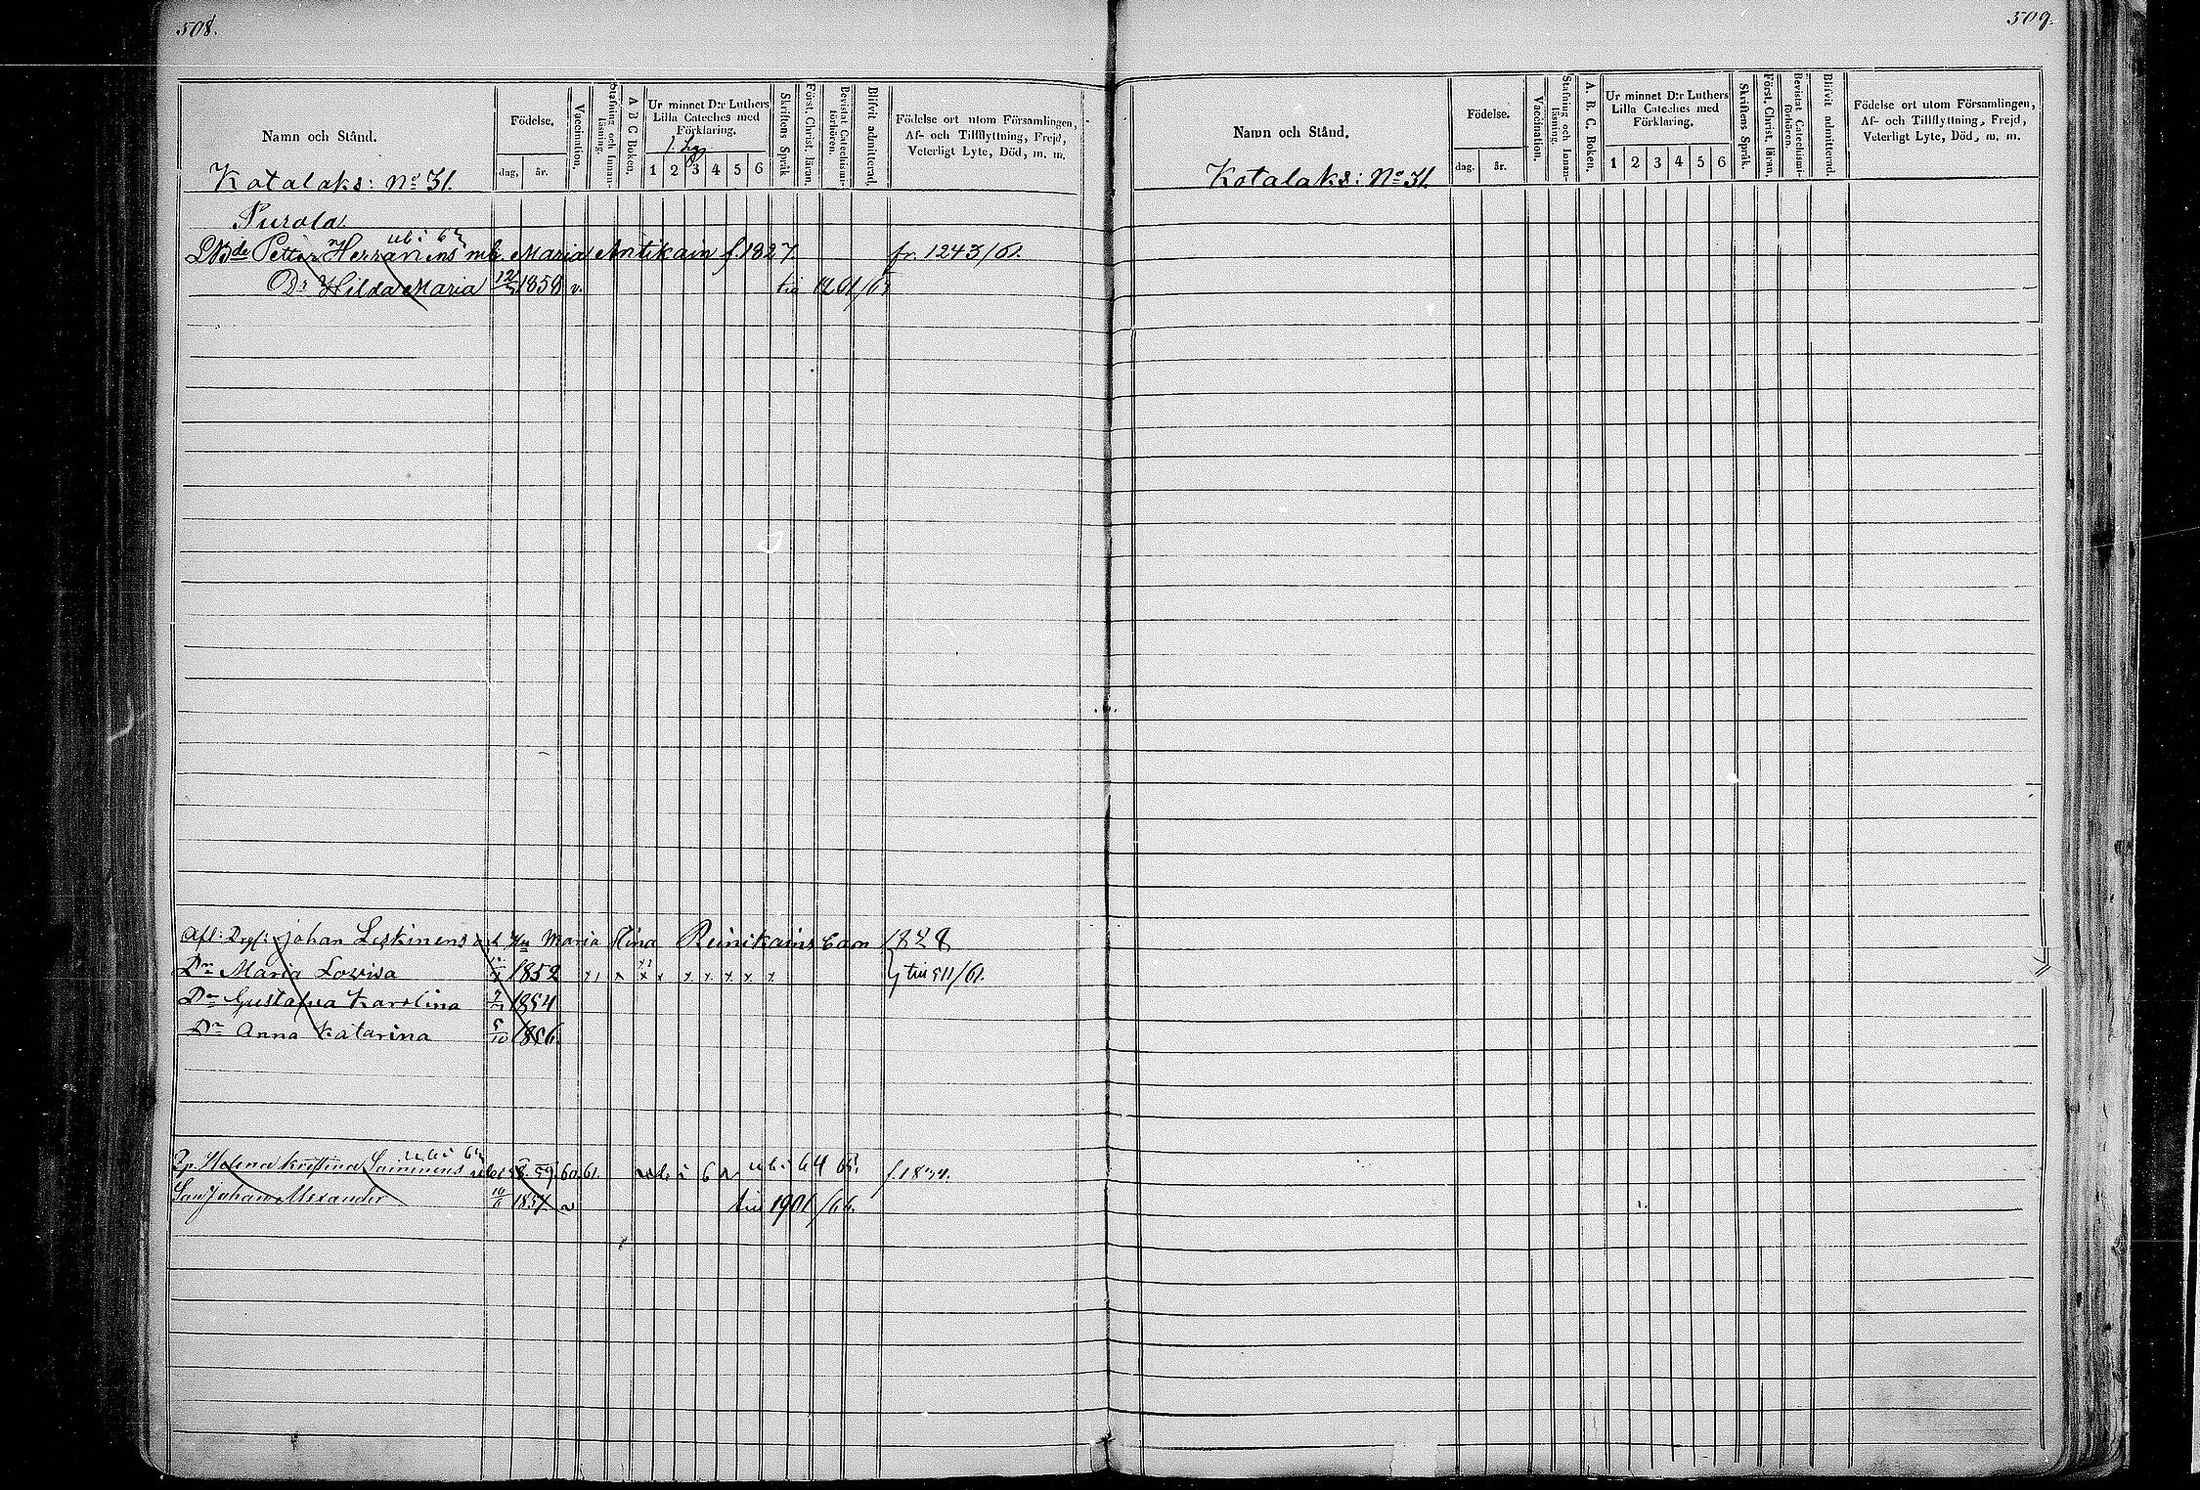 508.
Namn och Stånd.
Födelse.
dag, år.
Vaccination.
Stafning och Innan-läsning.
A B C Boken.
Ur minnet D:r Luthers Lilla Cateches med Förklaring.
1 2 3 4 5 6
Skriftens Språk
Först. Christ. läran.
Bevistat Catechismi-förhören.
Blifvit admitterad.
Födelse ort utom Församlingen, Af- och Tillflyttning, Frejd, Veterligt Lyte, Död, m. m.
Kotalaks: No 31.
Purola
Petter Herranens Maria Antikain f. 1827. fr. 1243/61.
Dr Hilda Maria 1858 v. 1261/63
Afl: Johan Leskinens Maria Stina Reinikains barn 1828
Dr Maria Lovisa 1852 till 511/61.
Dr Gustafva Karolina 1854
Dr Anna Katarina 5/10 1856.
Helena Kristina 58. 59. 60. 61. 64 65. f. 1834.
Son Johan Alexander 1857 v till 1901/66.
509.
Namn och Stånd.
Födelse.
dag. år.
Vaccination.
Stafning och Innan-läsning.
A. B. C. Boken.
Ur minnet D:r Luthers Lilla Cateches med Förklaring.
1 2 3 4 5 6
Skriftens Språk.
Först. Christ. läran.
Bevistat Catechismi-förhören.
Blifvit admitterad.
Födelse ort utom Församlingen, Af- och Tillflyttning, Frejd, Veterligt Lyte, Död, m. m.
Kotalaks: No 31.